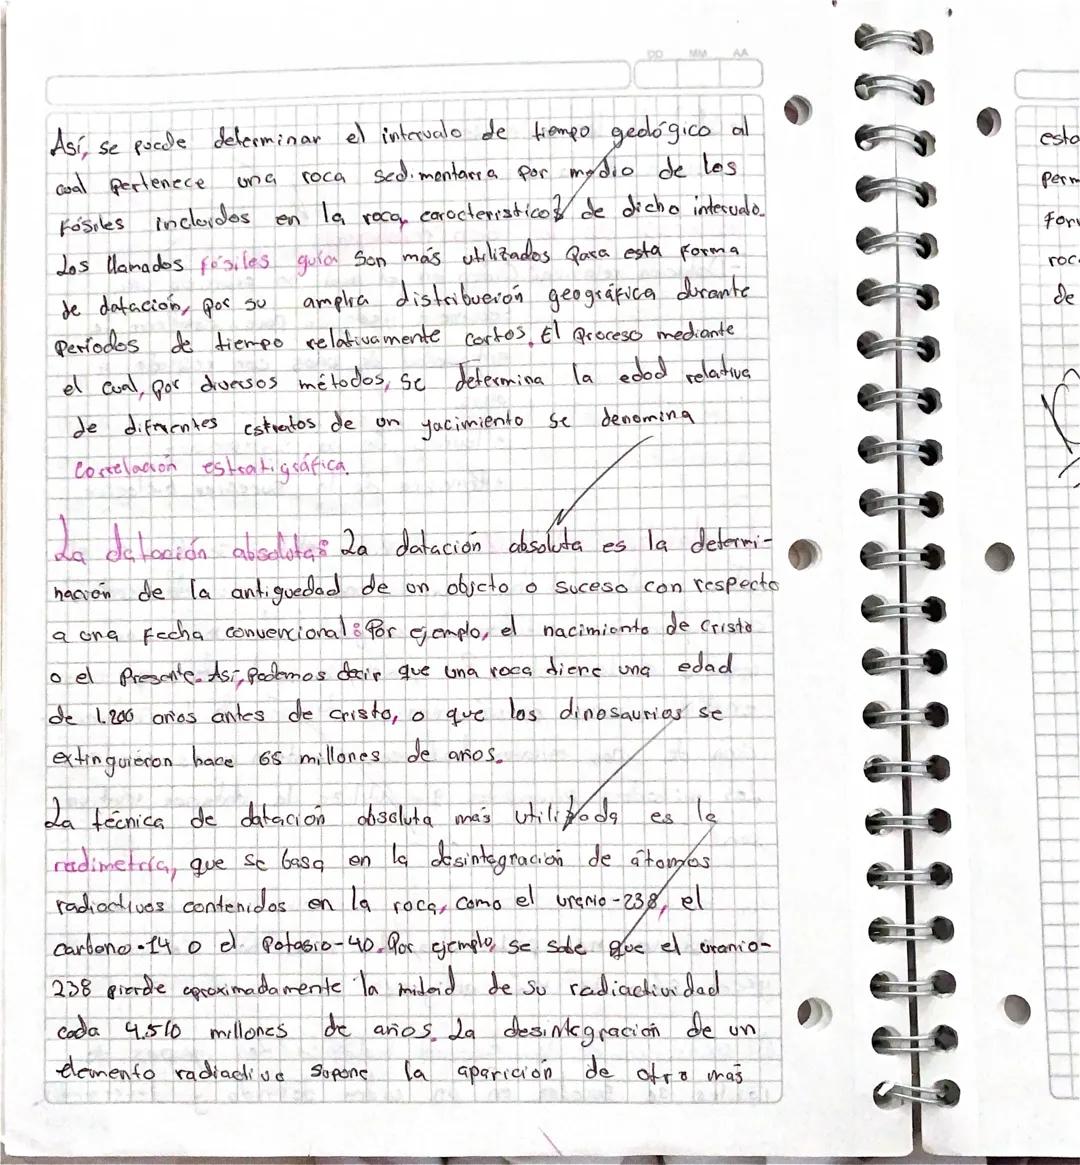 DD MM AA
Así, se puede determinar el intervalo de tiempo geológico al
cual pertenece una roca sedimentaria por medio de los
Fósiles incluidos en la roca, caracteristicos de dicho intervalo.
Los llamados fósiles guía son más utilizados para esta forma
de datación, por su amplia distribución geográfica durante
Períodos de tiempo relativamente cortos. El proceso mediante
el cual, por diversos métodos, se determina la edad relativa
de diferentes estratos de un yacimiento se denomina
Correlación estratigráfica.
La datación absoluta: La datación absoluta es la determi-
nación de la antiguedad de un objeto o suceso con respecto
a una Fecha convencional: Por ejemplo, el nacimiento de Cristo
o el Presente. Así, Podemos decir que una roca tiene una edad
de 1.200 años antes de cristo, o que los dinosaurios se
extinguieron hace 65 millones de años.
La técnica de datación absoluta más utilizada es la
radimetría, que se basa en la desintegración de átomos
radiactivos contenidos en la roca, como el uranio-238, el
carbono-14 o el Potasio-40. Por ejemplo, se sabe que el uranio-
238 pierde aproximadamente la mitad de su radiactividad
cada 4.510 millones de años. La desintegración de un
elemento radiactivo supone la aparición de otro más
esta
perm
For
roc
de